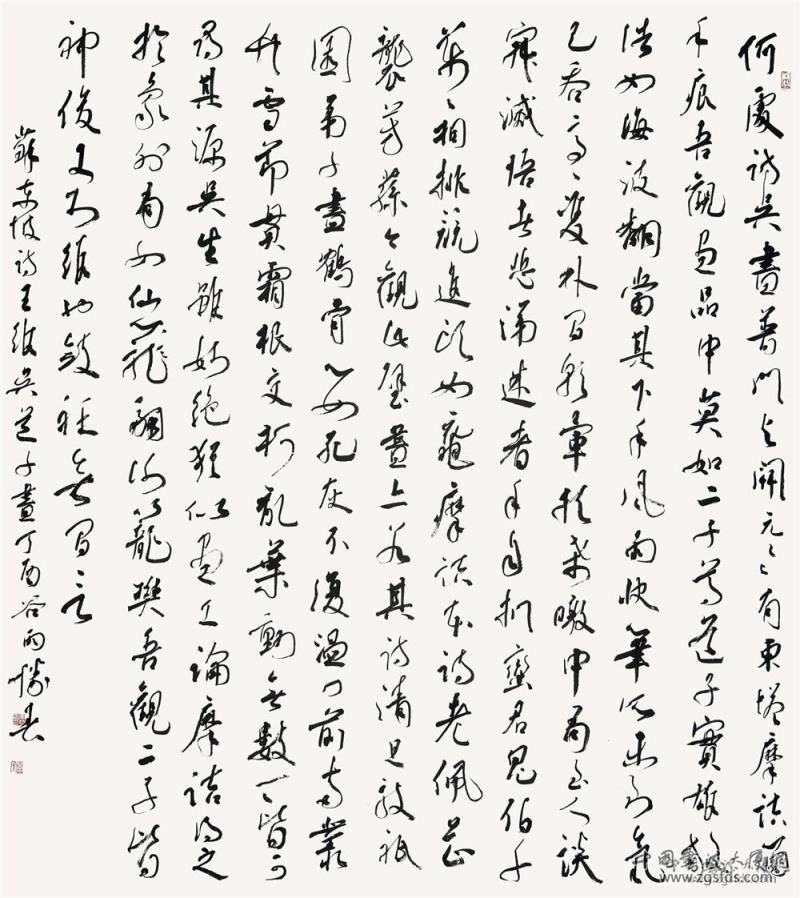 何處訪吳畫普門與開元々々有東塔摩詰留
手痕吾觀畫品中莫如二子尊道子實雄放
浩如海波翻當其下手風雨快筆所未到氣
已吞亭々雙林間彩暈扶桑暾中有至人談
寂滅悟者悲涕迷者手自捫蠻君鬼伯千
萬々相排競進頭如黿摩詰本詩老佩芷
襲芳蓀今觀此壁畫亦若其詩清且敦祇
園弟子盡鶴骨心如死灰不復溫門前兩叢
竹雪節貫霜根交柯亂葉動無數一一皆可
尋其源吳生雖妙絕猶以畫工論摩詰得之
於象外有如仙翮謝籠樊吾觀二子皆
神俊又於維也斂衽無間言
蘇東坡詩王維吳道子畫丁酉谷雨
中国书法大展网
www.zgsfds.com